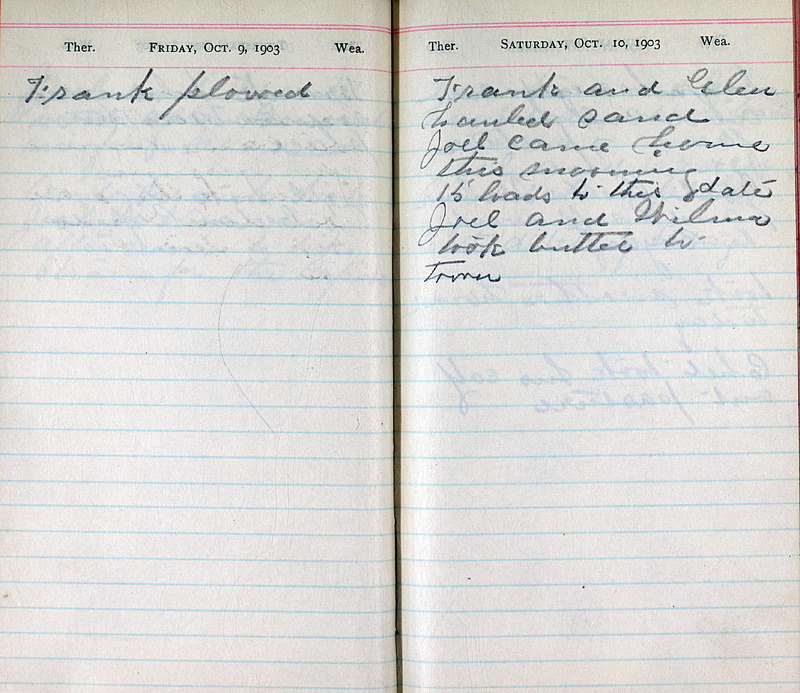 Ther. FRIDAY, OCT. 9, 1903 Wea.
Frank plowed
Ther. SATURDAY, OCT. 10, 1903 Wea.
Frank and Glen
hauled sand
Joel came home
this morning
15 loads to this date
Joel and Wilma
took butter to
town